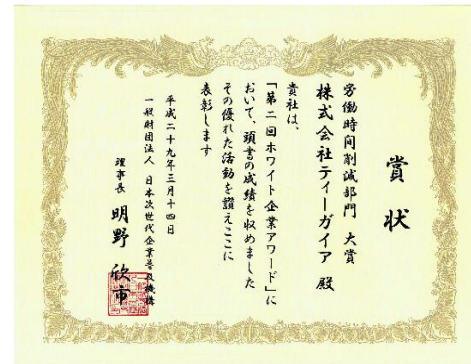 賞状
労働時間削減部門 大賞
株式会社ティーガイア 殿
貴社は、
「第二回ホワイト企業アワード」に
おいて、頭書の成績を収めました
その優れた活動を讃えここに
表彰します
平成二十九年三月十四日
一般財団法人 日本次世代企業普及機構
理事長 明野 欣市